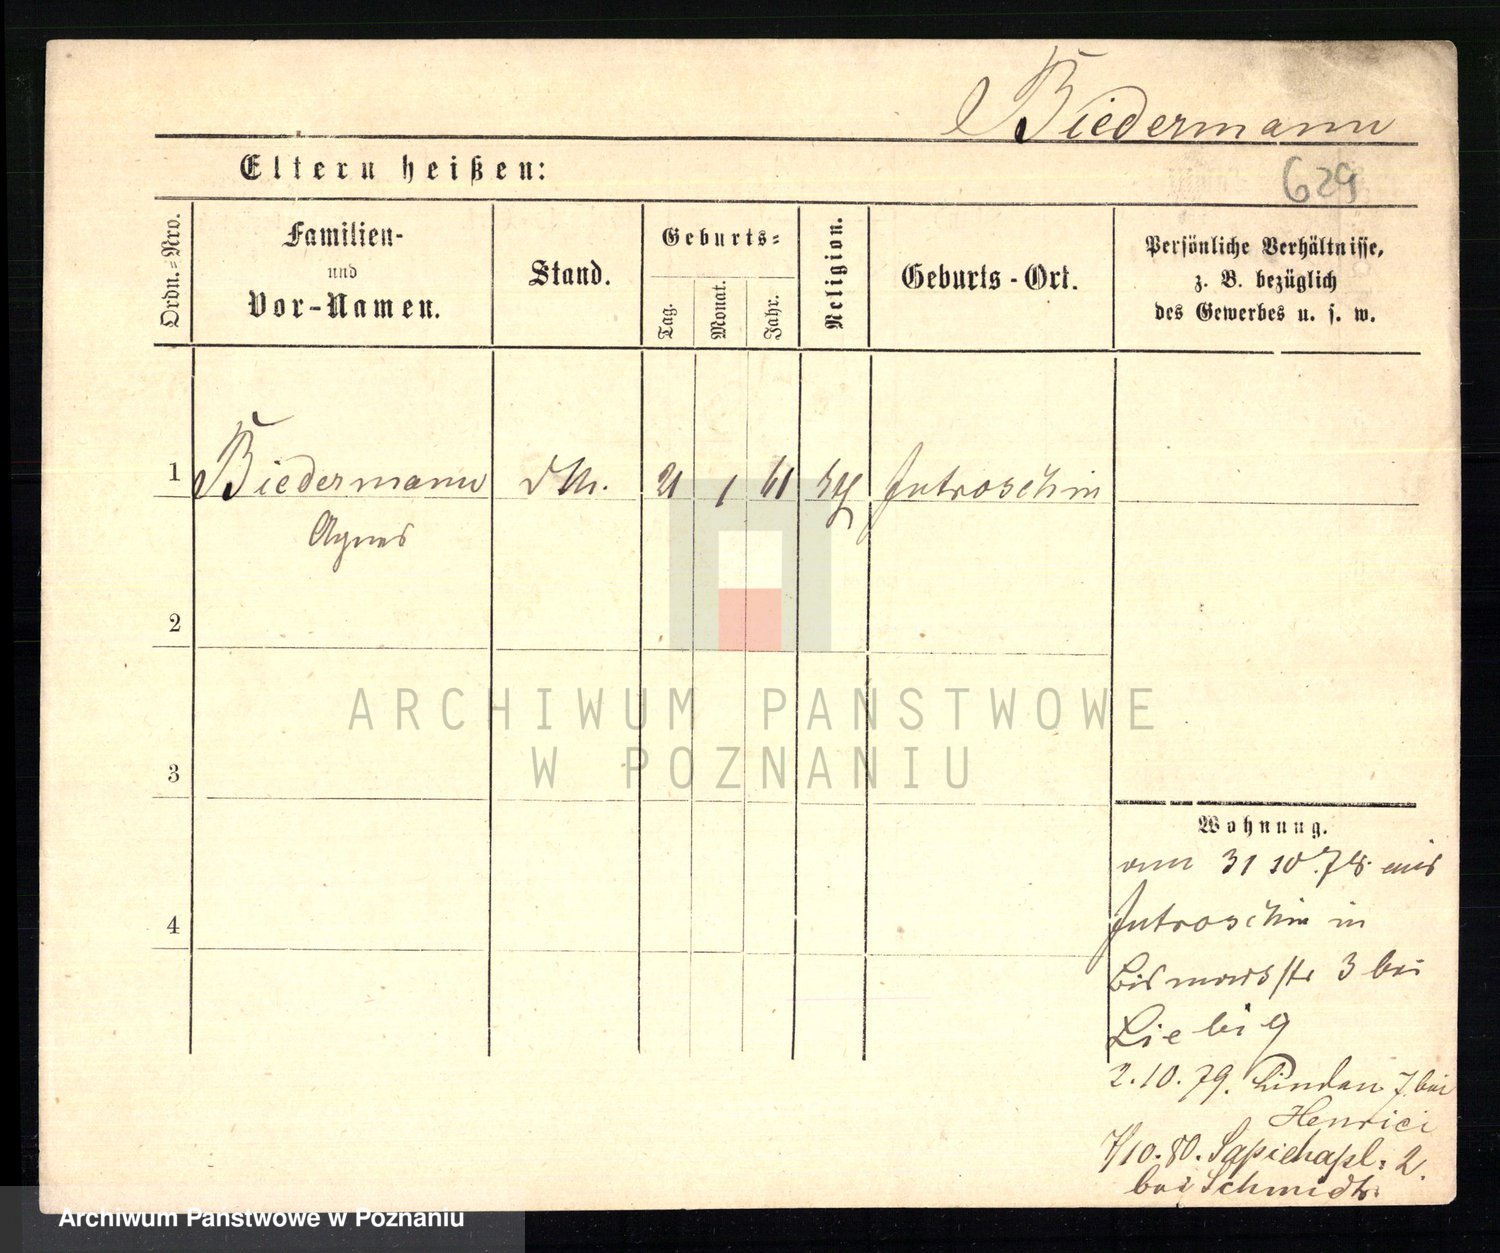 Biedermann
Eltern heißen:
629
Ordn.=Nro.
Familien-
und
Vor-Namen.
Stand.
Geburts=
Tag.
Monat.
Jahr.
Religion.
Geburts-Ort.
Persönliche Verhältnisse,
z. B. bezüglich
des Gewerbes u. s. w.
1 Biedermann 21 1 61 Jutroschin
Agnes
2
3
4
ARCHIWUM PAŃSTWOWE
W POZNANIU
Wohnung.
am 31 10. 78. aus
Jutroschin in
Bismarckstr 3 bei
Liebig
2.10.79. Linden 7 bei
Henrici
7/10.80. Sapiehapl: 2.
bei Schmidt.
Archiwum Państwowe w Poznaniu